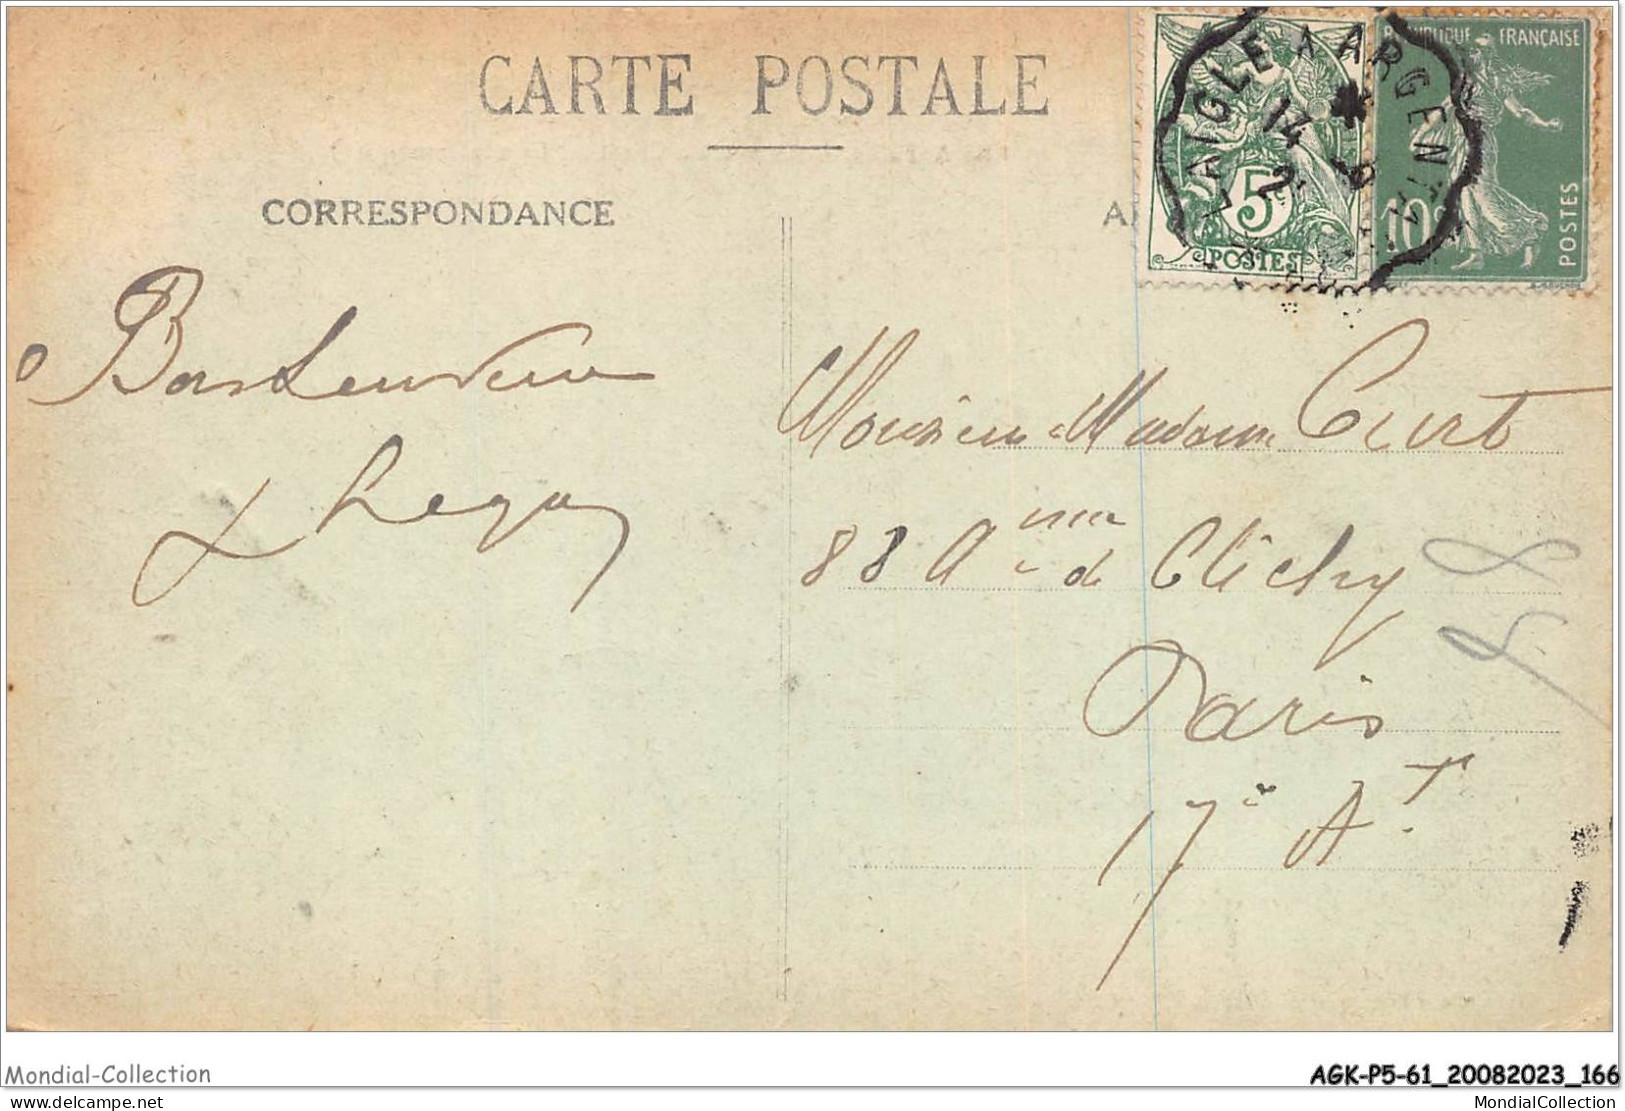 CARTE POSTALE
CORRESPONDANCE
LAIGLE A ARGENTAN
14
2
5
POSTES
RÉPUBLIQUE FRANÇAISE
10c
POSTES
Bons Souvenirs
Monsieur Madame Curt
88 Anue de Clichy
Paris
17e At
58
Mondial-Collection
AGK-P5-61_20082023_166
www.delcampe.net
MondialCollection